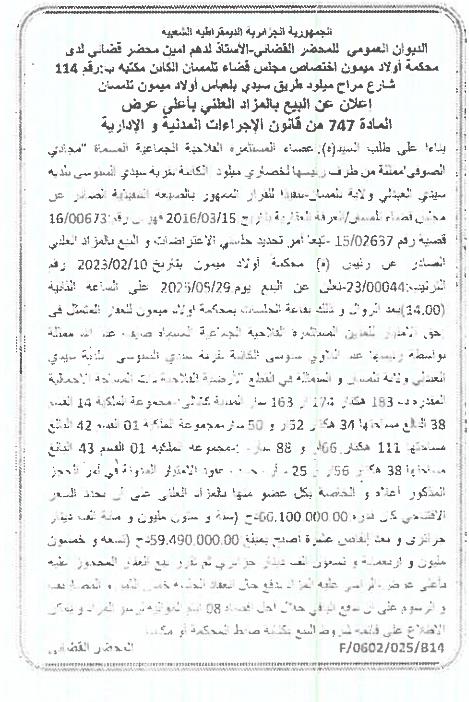 الجمهورية الجزائرية الديمقراطية الشعبية
الديوان العمومي للمحضر القضائي-الأستاذ لدهم أمين محضر قضائي لدى
محكمة أولاد ميمون اختصاص مجلس قضاء تلمسان الكائن مكتبه ب:رقم 114
شارع مراح ميلود طريق سيدي بلعباس أولاد ميمون تلمسان
إعلان عن البيع بالمزاد العلني بأعلى عرض
المادة 747 من قانون الإجراءات المدنية و الإدارية
بناءا على طلب السيد(ة): عضاء المستثمرة الفلاحية الجماعية المسماة "مجادي
الصوفي"ممثلة من طرف رئيسها لخضاري ميلود الكائنة بقرية سيدي السنوسي بلدية
سيدي العبدلي ولاية تلمسان-تنفيذا للقرار الممهور بالصيغة التنفيذية الصادر عن
مجلس قضاء تلمسان/الغرفة العقارية بتاريخ 2016/03/15 فهرس رقم:16/00673
قضية رقم 15/02637-تبعا أمر تحديد جلستي الاعتراضات و البيع بالمزاد العلني
الصادر عن رئيس (ة) محكمة أولاد ميمون بتاريخ 2023/02/10 رقم
الترتيب:23/00044-نعلن عن البيع يوم 2025/05/29 على الساعة الثانية
(14.00)بعد الزوال و ذلك بقاعة الجلسات بمحكمة أولاد ميمون للعقار المتمثل في
حق الامتياز للعين المستثمرة الفلاحية الجماعية المسماة عبد الله ممثلة
بواسطة رئيسها سنوسي الكائنة بقرية سيدي السنوسي بلدية سيدي
العبدلي ولاية تلمسان و المتمثلة في القطع الأرضية الفلاحية ذات المساحة الإجمالية
المقدرة ب 183 هكتار 174 ار 163 سار المبينة كتالي:-مجموعة الملكية 14 القسم
38 البالغ مساحتها 34 هكتار 52 ار و 50 سار-مجموعة الملكية 01 القسم 42 البالغ
مساحتها 111 هكتار 66 ار و 88 سار-مجموعة الملكية 01 القسم 43 البالغ
مساحتها 38 هكتار 56 ار و 25 عقود الامتياز المدونة في أمر الحجز
المذكور أعلاه و الخاصة بكل عضو منها بالمزاد العلني على أن يحدد السعر
الافتتاحي كان قدره 66.100.000.00دج (ستة و ستون مليون و مائة الف دينار
جزائري و بعد إنقاص عشرة أصبح بمبلغ 59.490.000.00دج (تسعة و خمسون
مليون و أربعمائة و تسعون الف دينار جزائري ثم تقرر بيع العقار المحجوز عليه
بأعلى عرض-الراسي عليه المزاد يدفع حال انعقاد الجلسة خمس الثمن و المصاريف
و الرسوم على أن يدفع الباقي خلال أجل أقصاه 08 أيام الموالية لرسو المزاد و يمكن
الاطلاع على قائمة شروط البيع بكتابة ضبط المحكمة أو مكتبنا
F/0602/025/B14 المحضر القضائي